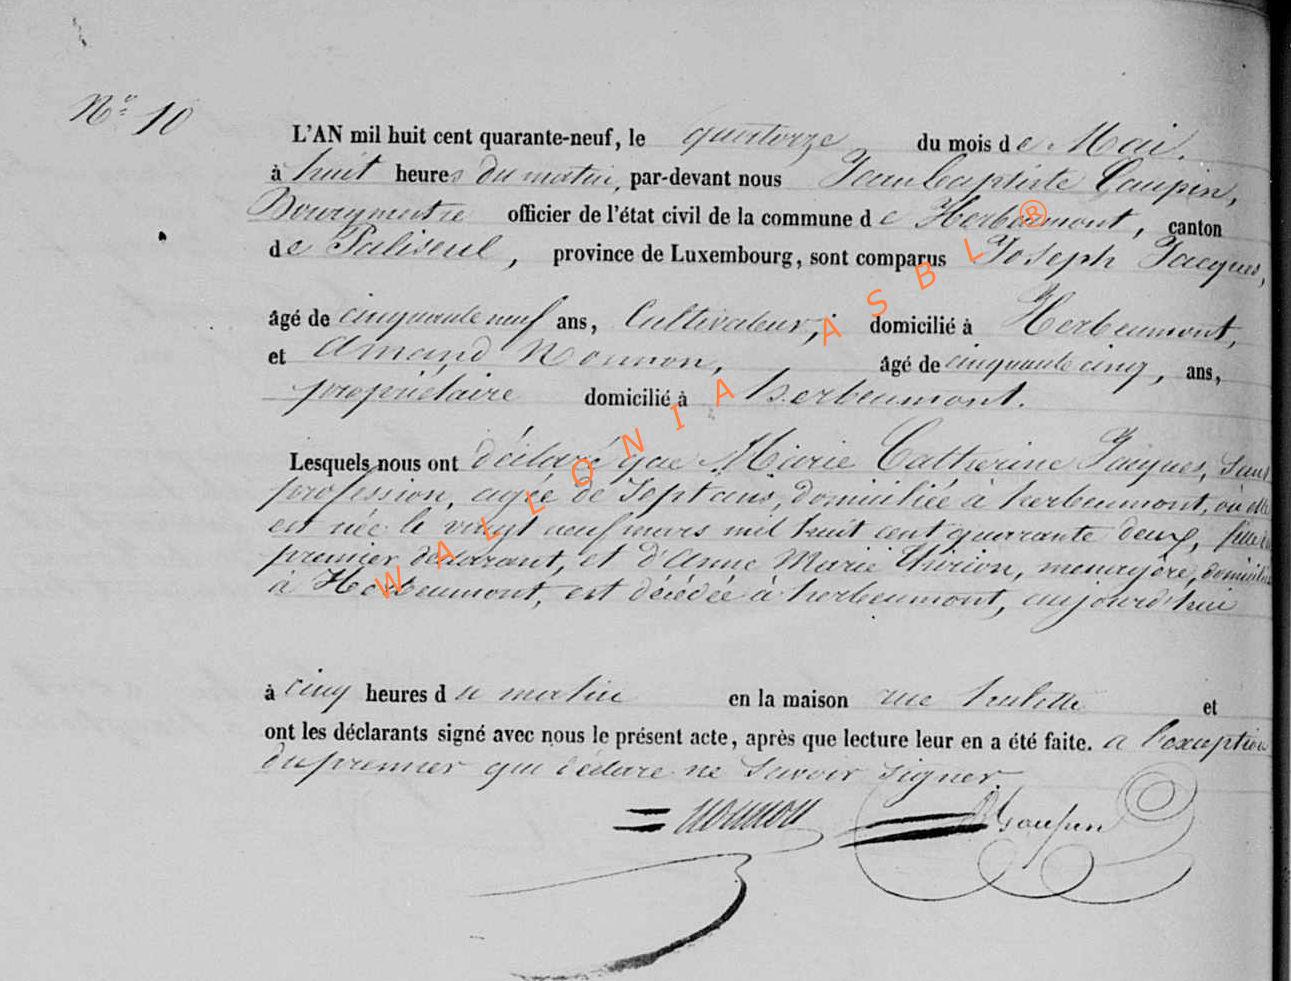 N° 10
L'AN mil huit cent quarante-neuf, le quatorze du mois de Mai.
à huit heures du matin, par-devant nous Jean baptiste Goupin,
Bourgmestre officier de l'état civil de la commune de Herbeumont, canton
de Paliseul, province de Luxembourg, sont comparus Joseph Jacques,
âgé de cinquante neuf ans, Cultivateur, domicilié à Herbeumont,
et Amand Nonnon, âgé de cinquante cinq, ans,
propriétaire domicilié à herbeumont.
Lesquels nous ont déclaré que Marie Catherine Jacques, Sans
profession, agée de Sept ans, domiciliée à herbeumont, où elle
est née le vingt neuf mars mil huit cent quarante deux, fille du
premier déclarant, et d'Anne Marie Thirion, menagère, domiciliée
à Herbeumont, est décédée à herbeumont, aujourd'hui
à cinq heures du matin en la maison rue et
ont les déclarants signé avec nous le présent acte, après que lecture leur en a été faite. a l'exception
du premier qui déclare ne Savoir signer
nonnon Goupin
WALLONIA ASBL ®